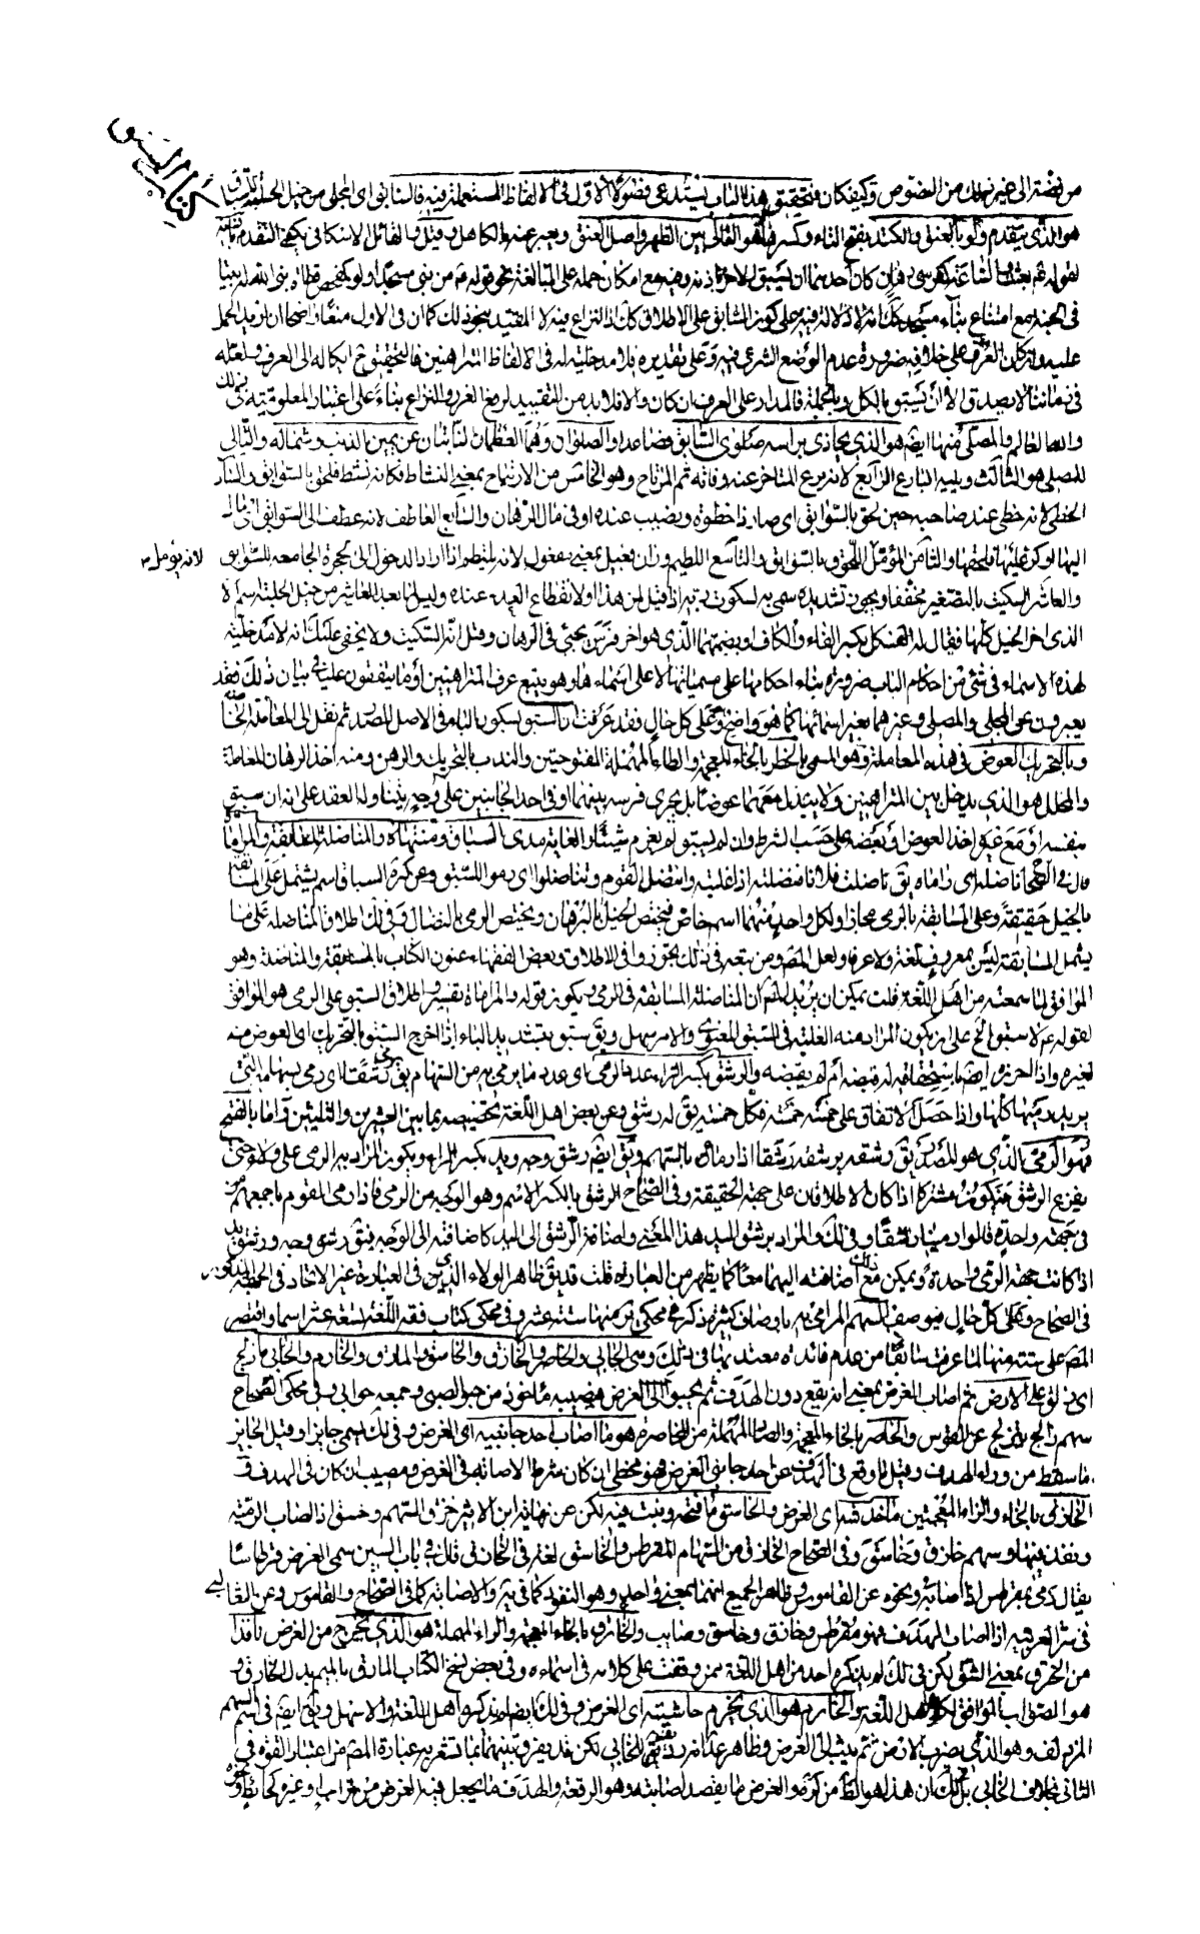 كتاب السبق
من نفسه الى غيره نهلك من النصوص وكيف كان فتحقيق هذا الباب يستدعى فصولا الاول فى الالفاظ المستعملة فيه فالسابق اى المجلى من خيل الحلبة
هو الذى يتقدم ولو بالعنق والكتد بفتح التاء وكسرها هو العالى بين الظهر واصل العنق ويعبر عنه بالكاهل وقيل والقائل الاسكافى يكفى التقدم
لقوله بعثت والساعة كفرسى رهان كان احدهما ان يسبق الاخر باذنه وفيه مع امكان حمله على المبالغة نحو قوله من بنى مسجدا ولو كمفحص قطاة بنى الله له بيتا
فى الجنة مع امتناع بناء مسجد كك انه لا دلالة فيه على كون السابق على الاطلاق كك اذ النزاع فيه لا المقيد
عليه وان كان العرف على خلافه ضرورة عدم الوضع الشرعى فيه وعلى تقديره فلا مدخلية له فى الالفاظ المتراهنين فالتحقيق ايكاله الى العرف ولعله
فى زماننا لا يصدق الا ان يسبق بالكل وبالجملة فالمدار على العرف ان كان والا فلابد من التقييد لرفع الغرر والنزاع بناء على اعتبار المعلومية فى ذلك
والمصلى منها ايضا هو الذى يحاذى براسه صلوى السابق فصاعدا والصلوان وهما العظمان النابتان عن يمين الذنب وشماله والتالى
للمصلى هو الثالث ويليه البارع الرابع لانه برع المتاخر عنه وفاته ثم المرتاح وهو الخامس من الارتياح بمعنى النشاط فكانه نشط فلحق بالسوابق والسادس
الحظى لانه حظى عند صاحبه حين لحق بالسوابق اى صار ذا حظوة ونصيب عنده او فى مال الرهان والسابع العاطف لانه عطف الى السوابق اى مال
اليها او كر عليها فلحقها والثامن المؤمل اللحوق بالسوابق والتاسع اللطيم وزان فعيل بمعنى مفعول لانه يلطم اذا اراد الدخول الى الحجرة الجامعة للسوابق
لانه يؤمل
والعاشر السكيت بالتصغير مخففا ويجوز تشديده سمى به لسكوت ربه اذا قيل لمن هذا او لانقطاع العدد عنده وليس لما بعد العاشر من خيل الحلبة اسم الا
الذى اخر الخيل كلها فيقال له الفسكل بكسر الفاء والكاف او بضمهما الذى هو اخر فرس يجئ فى الرهان وقيل انه السكيت ولا يخفى عليك انه لا مدخلية
لهذه الاسماء فى شئ من احكام الباب ضرورة بناء احكامها على مسمياتها لا على اسماءها وهو يتبع عرف المتراهنين او ما يتفقون عليه فى بيان ذلك فقد
يعبرون عن المجلى والمصلى وغيرهما بغير اسمائهما كما هو واضح وعلى كل حال فقد عرفت ان السبق بسكون الباء فى الاصل المصدر ثم نقل الى المعاملة الخاصة
وبالتحريك العوض فى هذه المعاملة وهو المسمى بالخطر بالخاء المعجمة والطاء المهملة المفتوحتين والندب بالتحريك والرهن ومنه اخذ الرهان للمعاملة
والمحلل هو الذى يدخل بين المتراهنين ولا يبذل معهما عوضا بل يجرى فرسه بينهما او فى احد الجانبين على وجه يتناوله العقد على انه ان سبق
بنفسه او مع غيره اخذ العوض او بعضه على حسب الشرط وان لم يسبق لم يغرم شيئا والغاية مدى السباق ومنتهاه والمناضلة المسابقة والمراماة
قال فى الصحاح ناضله اى راماه يق ناضلت فلانا فنضلته اذا غلبته وانتضل القوم وتناضلوا اى رموا للسبق وعن كرة السباق اسم يشتمل على المسابقة
بالخيل حقيقة وعلى المسابقة بالرمى مجازا ولكل واحد منهما اسم خاص فيختص الخيل بالرهان ويختص الرمى بالنضال وفى لك اطلاق المناضلة على ما
يشمل المسابقة ليس بمعروف لغة ولا عرفا ولعل المصنف ومن تبعه فى ذلك تجوزوا فى الاطلاق وبعض الفقهاء عنون الكتاب بالمسابقة والمناضلة وهو
الموافق لما سمعته من اهل اللغة قلت يمكن ان يريد المصنف ان المناضلة المسابقة فى الرمى ويكون قوله والمراماة تفسيرا واطلاق السبق على الرمى هو الموافق
لقوله لا سبق الخ على ان يكون المراد منه الغلبة فى السبق المعنوى والامر سهل ويق سبق بتشديد الباء اذا اخرج السبق بالتحريك اى العوض منه
لغيره واذا احرزه ايضا باستحقاقه له قبضه ام لم يقبضه والرشق بكسر الراء عدد الرمى اى عدد ما يرمى به من السهام يق رشقا اى رمى بسهامه التى
يريد رميها كلها واذا حصل الاتفاق على خمسة خمسة فكل خمسة يق له رشق وعن بعض اهل اللغة تخصيصه بما بين العشرين والثلثين واما بالفتح
فهو الرمى الذى هو المصدر يق رشقه يرشقه رشقا اذا رماه بالسهم ويق ايضا رشق وجه ويد بكسر الراء ويكون المراد به الرمى على ولاء حتى
يفرغ الرشق فيكون مشتركا اذا كان الاطلاقان على جهة الحقيقة وفى الصحاح الرشق بالكسر الاسم وهو الوجه من الرمى فاذا رمى القوم باجمعهم
فى جهة واحدة قالوا رمينا رشقا وفى لك والمراد برشق اليد هذا المعنى واضافة الرشق الى اليد كاضافته الى الوجه فيق رشق وجه ورشق يد
اذا كانت جهة الرمى واحدة ويمكن مع ذلك اضافته اليهما معا كما يظهر من العبارة قلت قد يق ظاهر الولاء الذى فى العبارة غير الاتحاد فى الجهة المذكور
فى الصحاح وعلى كل حال فيوصف السهم المرامى به باوصاف كثيرة ذكر فى محكى كرة منها ستة عشر وفى محكى كتاب فقه اللغة تسعة عشر اسما واقتصر
المصنف على ستة منها لما عرفت سابقا من عدم فائدة معتد بها فى ذلك وهى الحابى والخاصر والخازق والخاسق والمارق والخارم والحابى ما زلج
اى زلق على الارض ثم اصاب الغرض بمعنى انه يقع دون الهدف ثم يحبو الى الغرض فيصيبه ماخوذ من حبو الصبى وجمعه حوابى وفى محكى الصحاح
سهم زالج يتزلج عن القوس والخاصر بالخاء المعجمة والصاد المهملة من الخاصرة هو ما اصاب احد جانبيه اى الغرض وفى لك يسمى جابزا وقيل الجابز
ما سقط من وراء الهدف وقيل ما وقع فى الهدف عن احد جانبى الغرض فهو مخطئ ان كان شرط الاصابة فى الغرض ومصيب ان كان فى الهدف و
الخازق بالخاء والزاء المعجمتين ما خدشه اى الغرض والخاسق ما فتحه وثبت فيه لكن عن نهاية ابن الاثير خزق السهم وخسق اذا اصاب الرمية
ونفذ فيها وسهم خازق وخاسق وفى الصحاح الخازق من السهام المقرطس والخاسق لغة فى الخازق قال فى باب السين يسمى الغرض قرطاسا
يقال رمى فقرطس اذا اصابه ونحوه عن القاموس وظاهر الجميع انهما بمعنى واحد وهو النفوذ كما فى يه والاصابة كما فى الصحاح والقاموس وعن الثعالبى
فى سر العربية اذا اصاب الهدف فهو مقرطس وخازق وخاسق وصايب والخارق بالخاء المعجمة والراء المهملة هو الذى يخرج من الغرض نافذا
من الخرق بمعنى الشق لكن فى لك لم يذكره احد من اهل اللغة ممن وقفت على كلامه فى اسماءه وفى بعض نسخ الكتاب المارق بالميم بدل الخارق و
هو الصواب الموافق لكلام اهل اللغة والخارم هو الذى يخرم حاشيته اى الغرض وفى لك ايضا لم يذكره اهل اللغة والامر سهل ويق ايضا فى اسم السهم
المزدلف وهو الذى يضرب الارض ثم يثب الى الغرض وظاهر عدة انه يرادف الحابى لكن قد يفرق بينهما بما تشعر به عبارة المصنف من اعتبار القوة فى
الثانى بخلاف الحابى بل لك ان هذا هو الظ من كرة والغرض ما يقصد اصابته وهو الرقعة والهدف ما يجعل فيه الغرض من تراب او غيره كحائط ونحوه